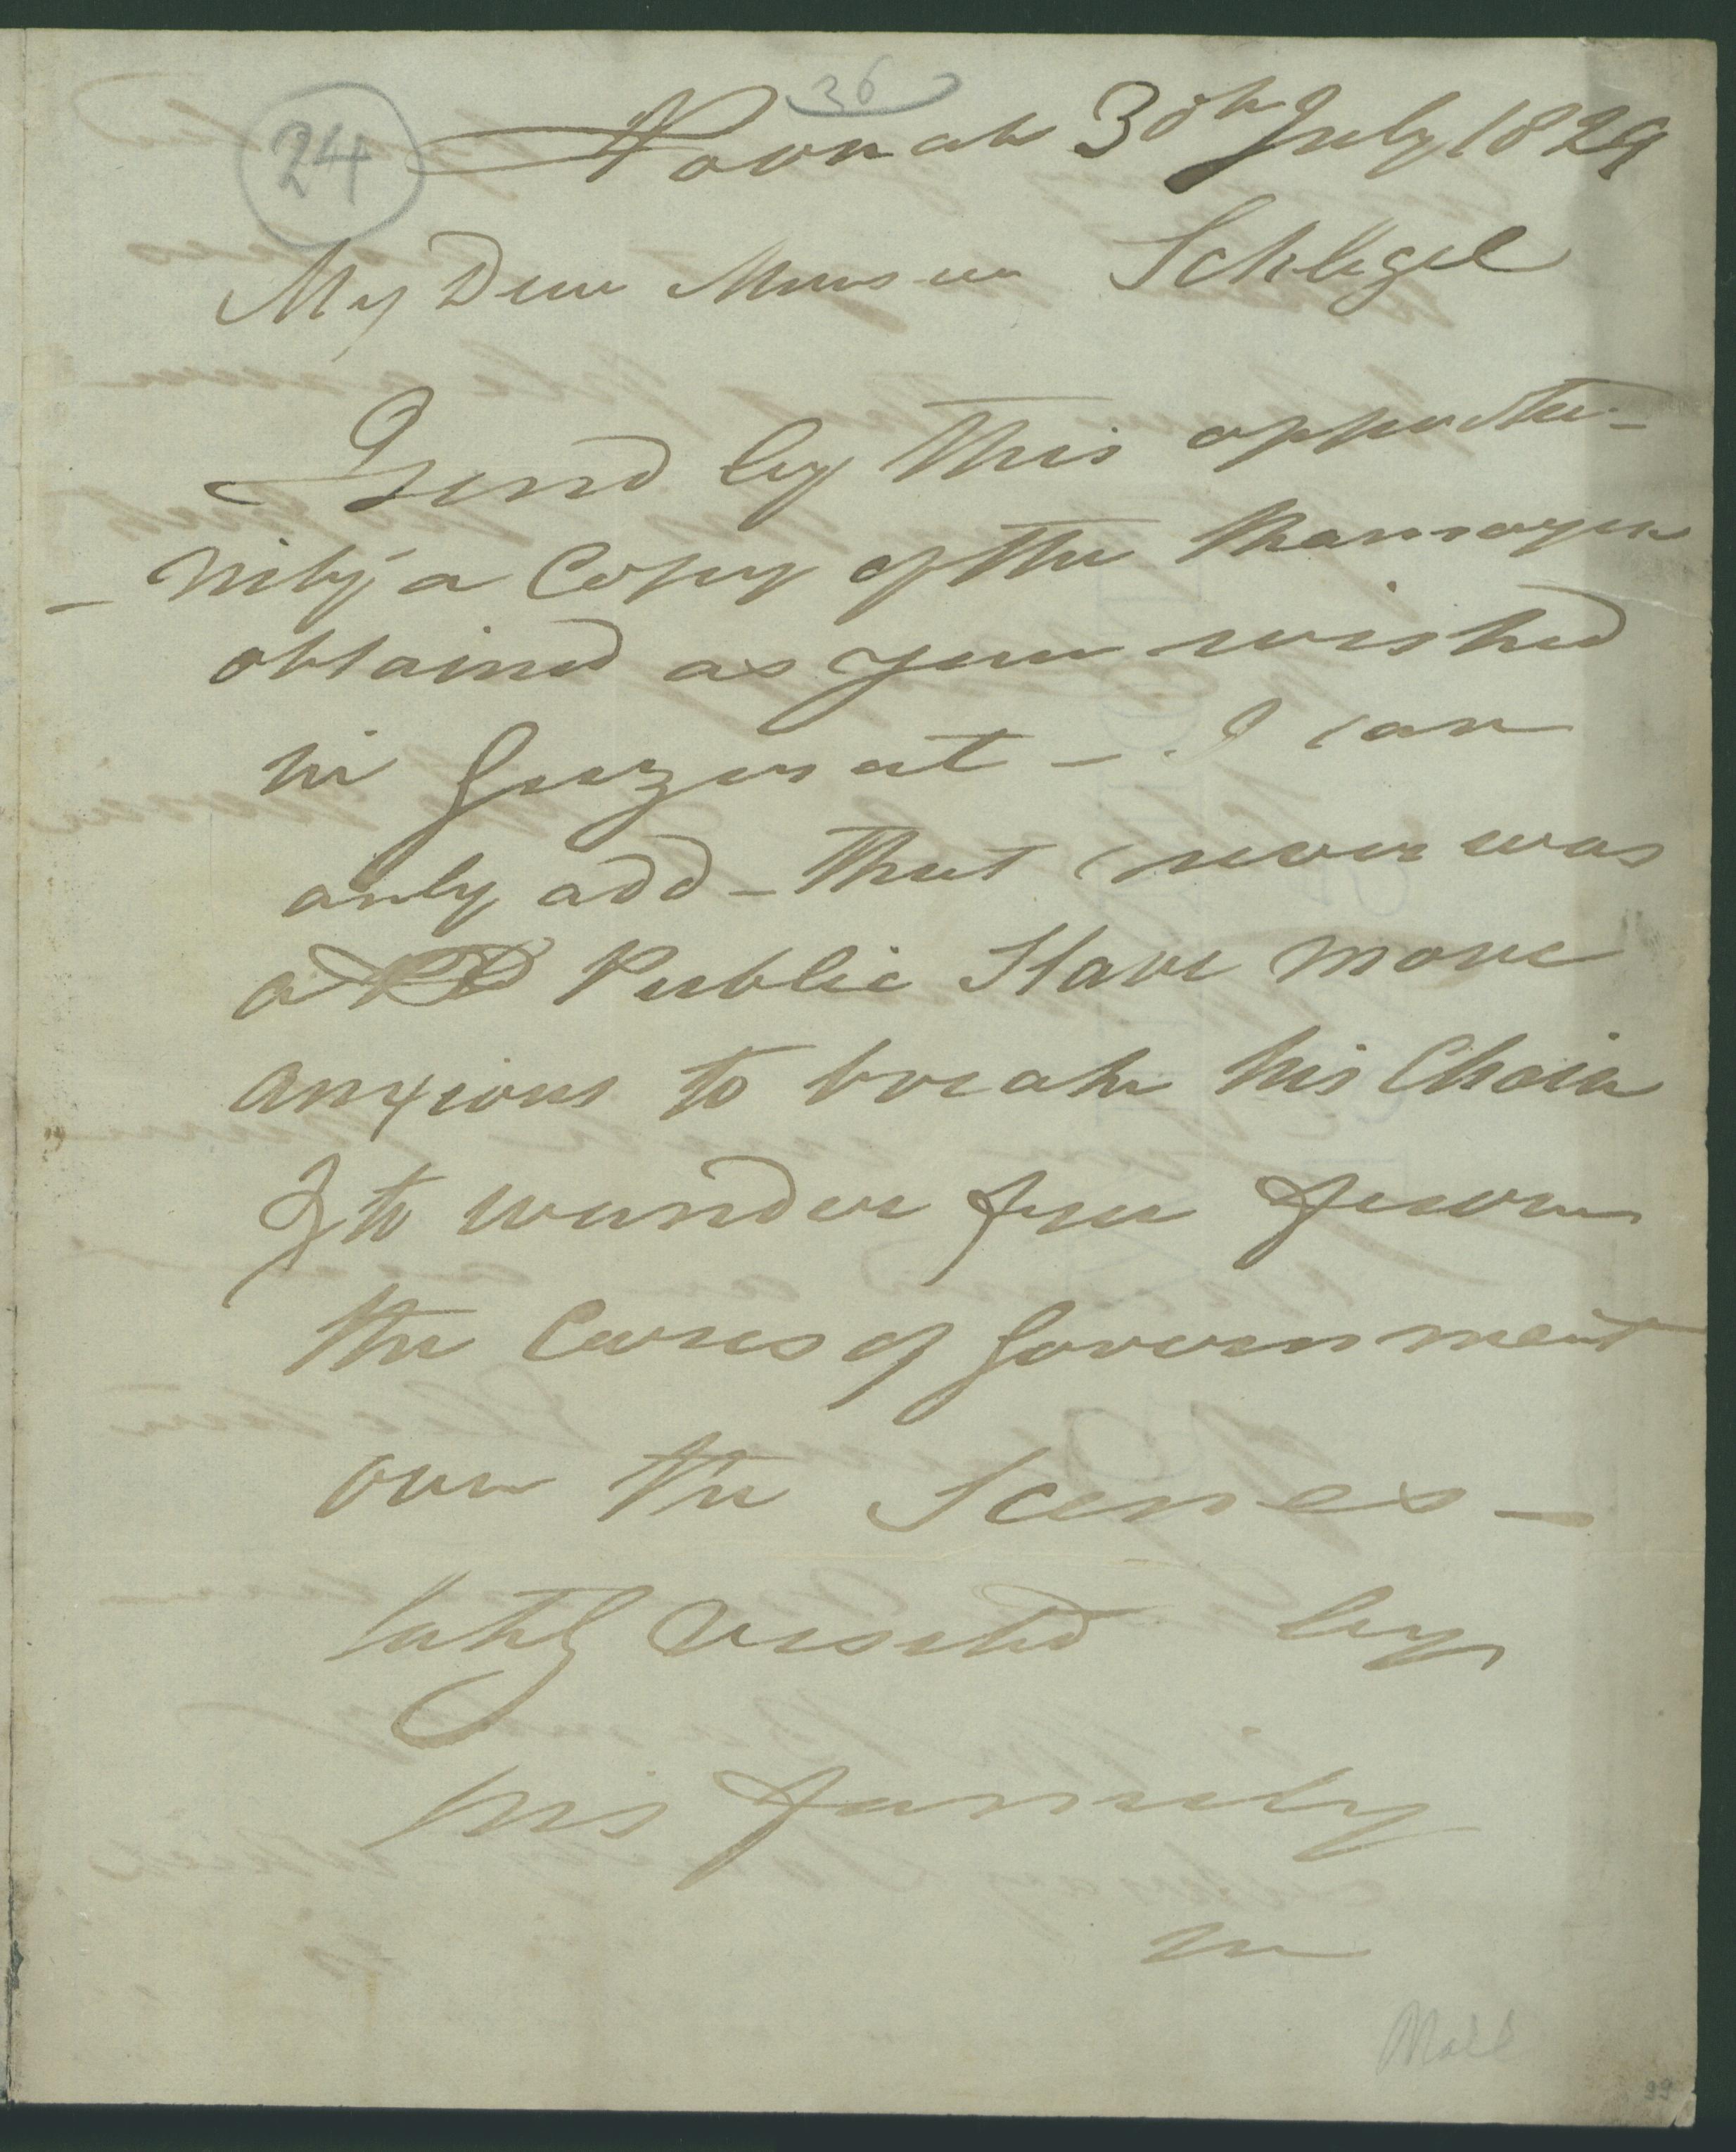 36
24
Poonah 30th July 1829
My Dear Monsieur Schlegel
I send by this opportu-
- nity a Copy of the Ramayen
obtained as you wished
in Guzerat - I can
only add - that never was
a Public Slave more
anxious to break his Chain
& to wander free from
the Cares of Government
over the Scenes -
lately visited by
his family